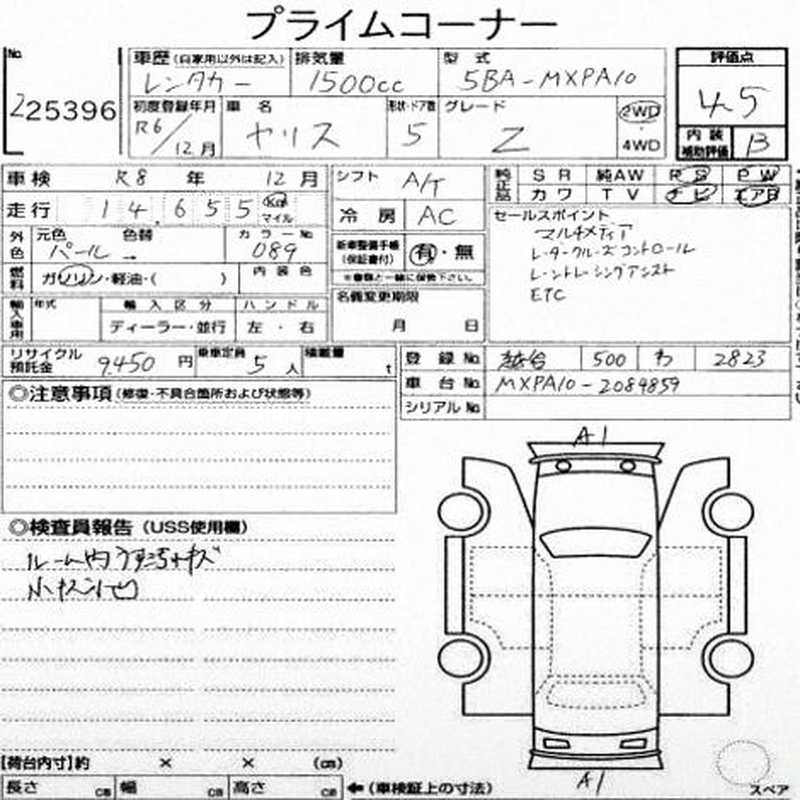 プライムコーナー
No.
225396
車歴(自家用以外は記入) 排気量 型式 評価点
レンタカー 1500cc 5BA-MXPA10 4.5
初度登録年月 車名 形状・ドア数 グレード 2WD
R6/12月 ヤリス 5 Z 4WD
内装補助評価 B
車検 R8年 12月 シフト A/T
純正品 SR 純AW PS PW
カワ TV ナビ エアB
走行 14,655 Km マイル 冷房 AC
セールスポイント
マルチメディア
レーダークルーズコントロール
レーントレーシングアシスト
ETC
外色 元色 色替 カラーNo.
パール → 089
新車整備手帳(保証書付) 有・無
※書類と一緒に保管下さい。
燃料 ガソリン・軽油・( ) 内装色
名義変更期限
月 日
輸入車用 年式 輸入区分 ハンドル
ディーラー・並行 左・右
リサイクル預託金 9450円 乗車定員 5人 積載量 t
登録No. 越谷 500 わ 2823
車台No. MXPA10-2084859
シリアルNo.
◎注意事項(修復・不具合箇所および状態等)
A1
◎検査員報告(USS使用欄)
ルーム内うすこちゃキズ
小キズ小凹
A1
[荷台内寸]約 × × (cm)
長さ cm 幅 cm 高さ cm ←(車検証上の寸法)
スペア